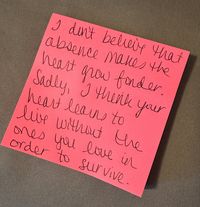 I don't believe that
absence makes the
heart grow fonder.
Sadly, I think your
heart learns to
live without the
ones you love in
order to survive.